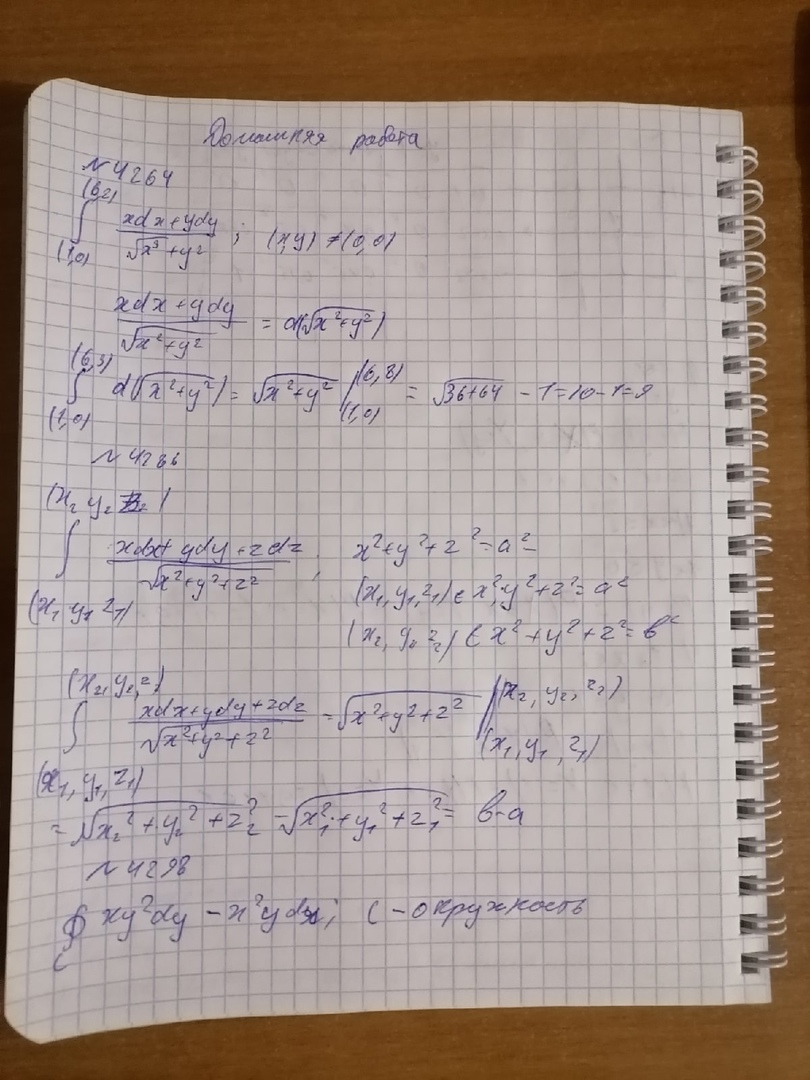 Домашняя работа
№4264
∫_(1,0)^(6,2) (xdx+ydy)/√(x³+y²) ; (x,y) ≠ (0,0)
(xdx+ydy)/√(x²+y²) = d(√(x²+y²))
∫_(1,0)^(6,3) d(√(x²+y²)) = √(x²+y²) |_(1,0)^(6,8) = √(36+64) - 1 = 10-1=9
№4286
∫_(x₁ y₁ z₁)^(x₂ y₂ z₂) (xdx+ydy+zdz)/√(x²+y²+z²) ; x²+y²+z²=a²
(x₁,y₁,z₁) ∈ x²,y²+z²=a²
(x₂, y₂ z₂) ∈ x²+y²+z²=b²
∫_(x₁,y₁,z₁)^(x₂,y₂,z) (xdx+ydy+zdz)/√(x²+y²+z²) = √(x²+y²+z²) |_(x₁,y₁,z₁)^(x₂,y₂,z₂)
= √(x₂²+y₂²+z₂²) - √(x₁²+y₁²+z₁²) = b-a
№4298
∮_C xy²dy - x²ydx; C - окружность